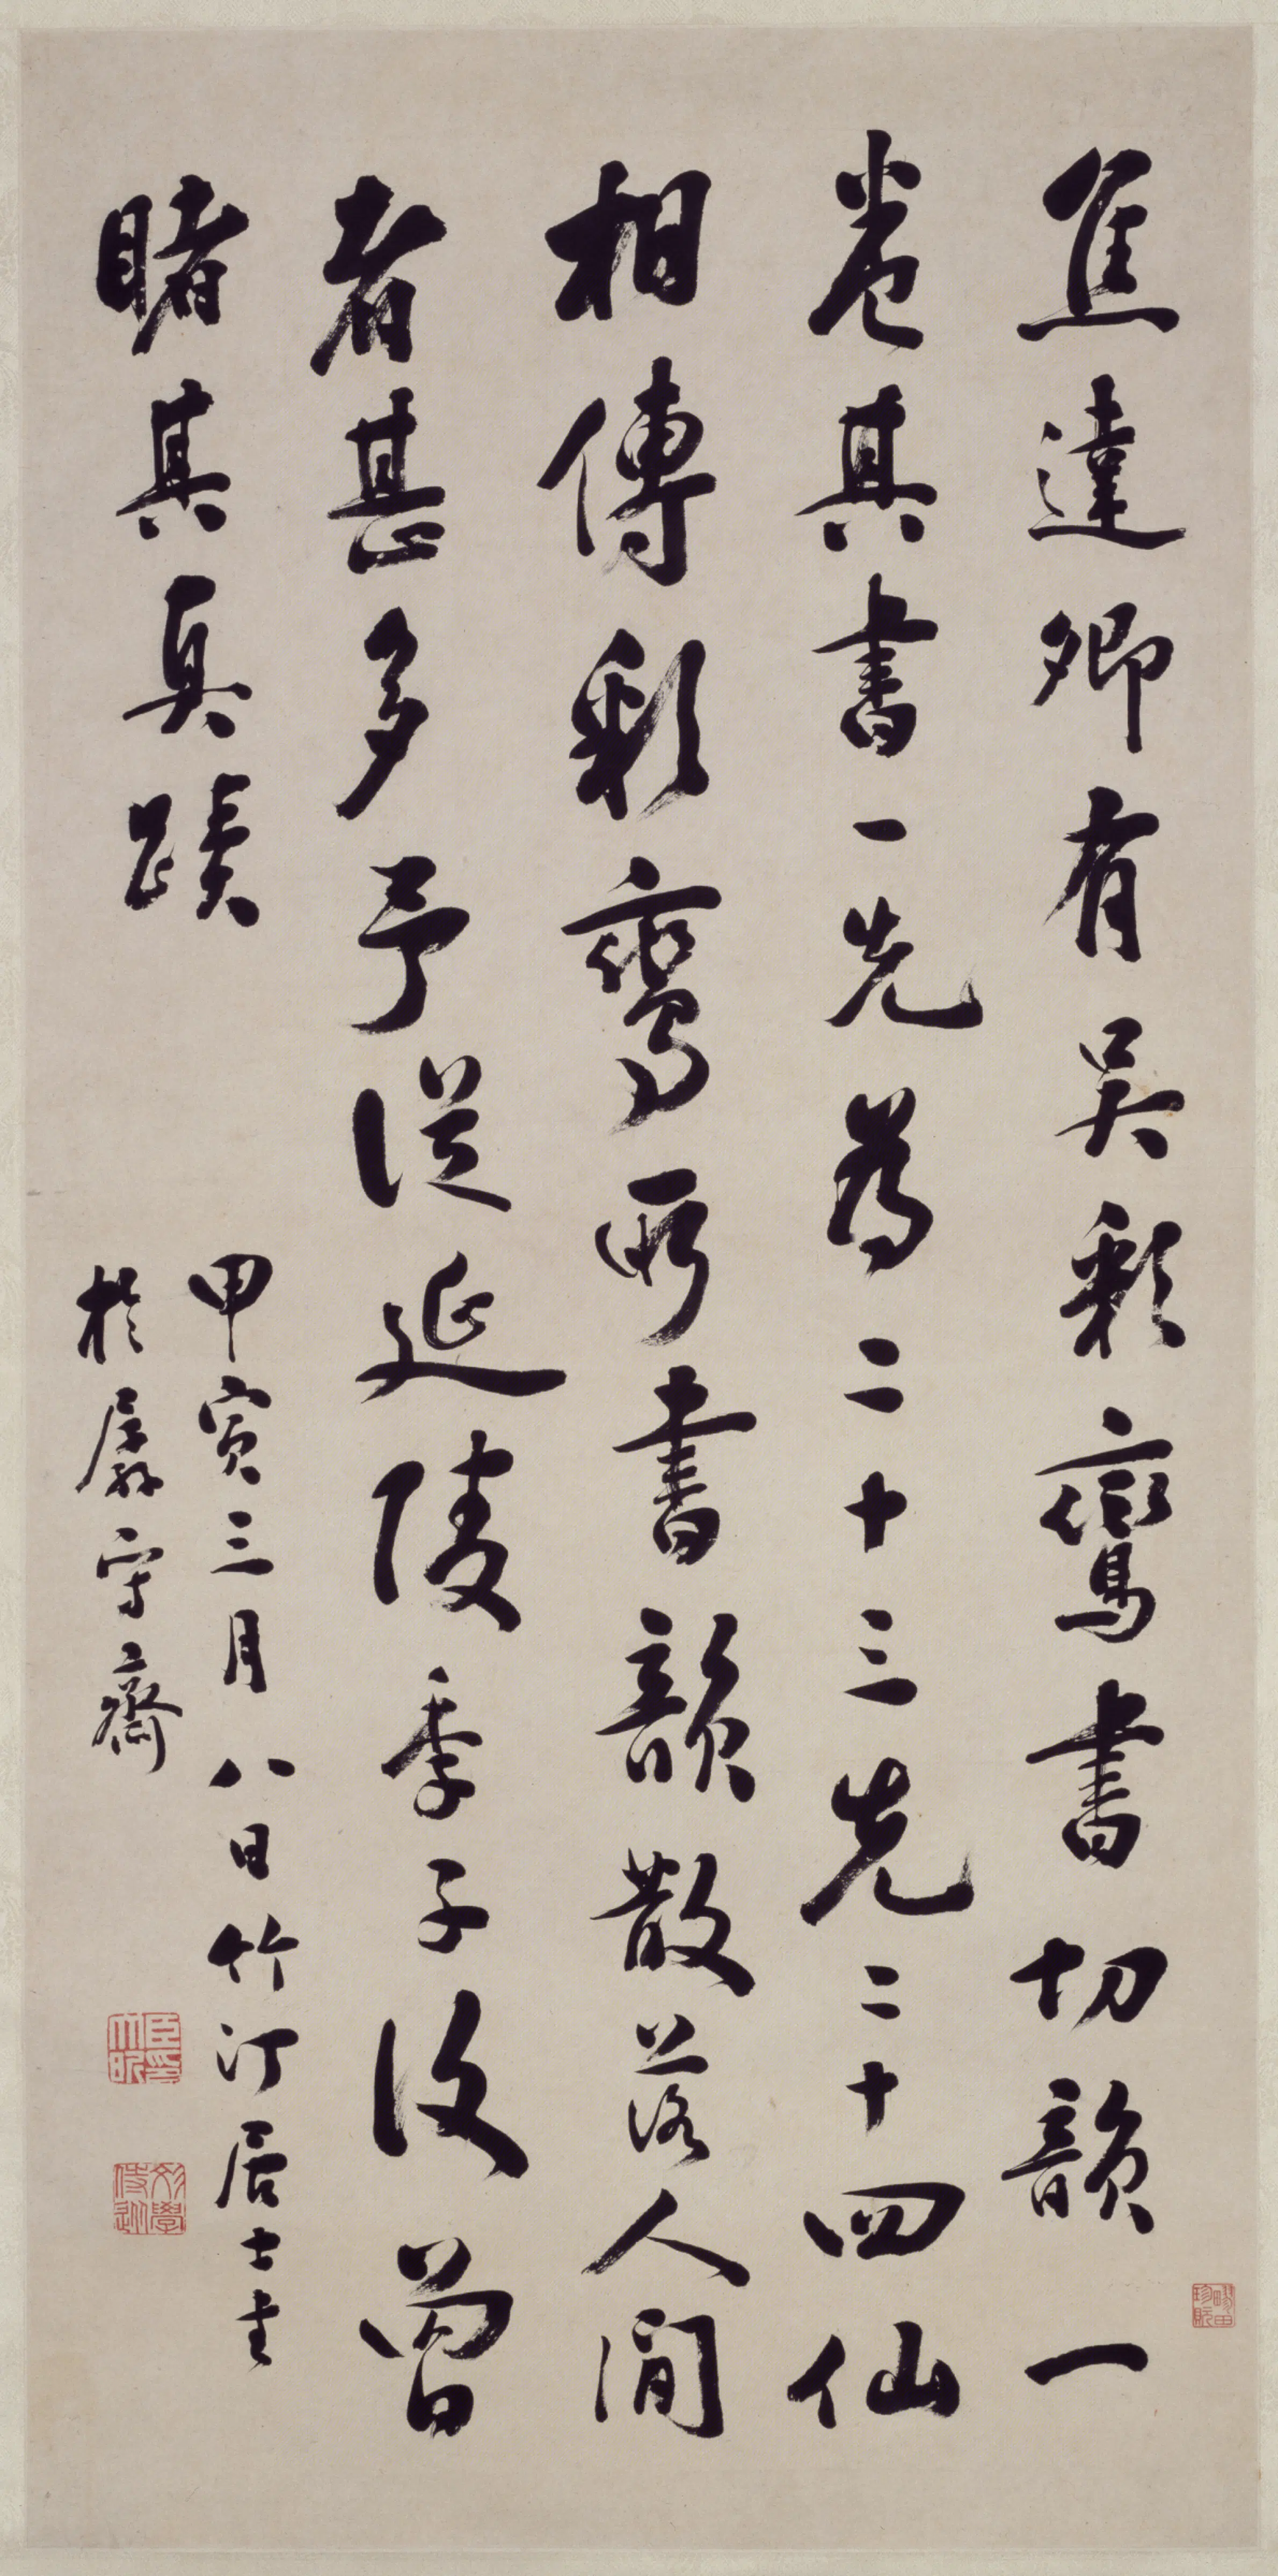 焦達卿有吳彩鸞書切韻一
卷其書一先為二十三先二十四仙
相傳彩鸞所書韻散落人間
者甚多予從延陵季子後曾
睹其真蹟
甲寅三月八日竹汀居士書
於孱守齋
臣大昕印